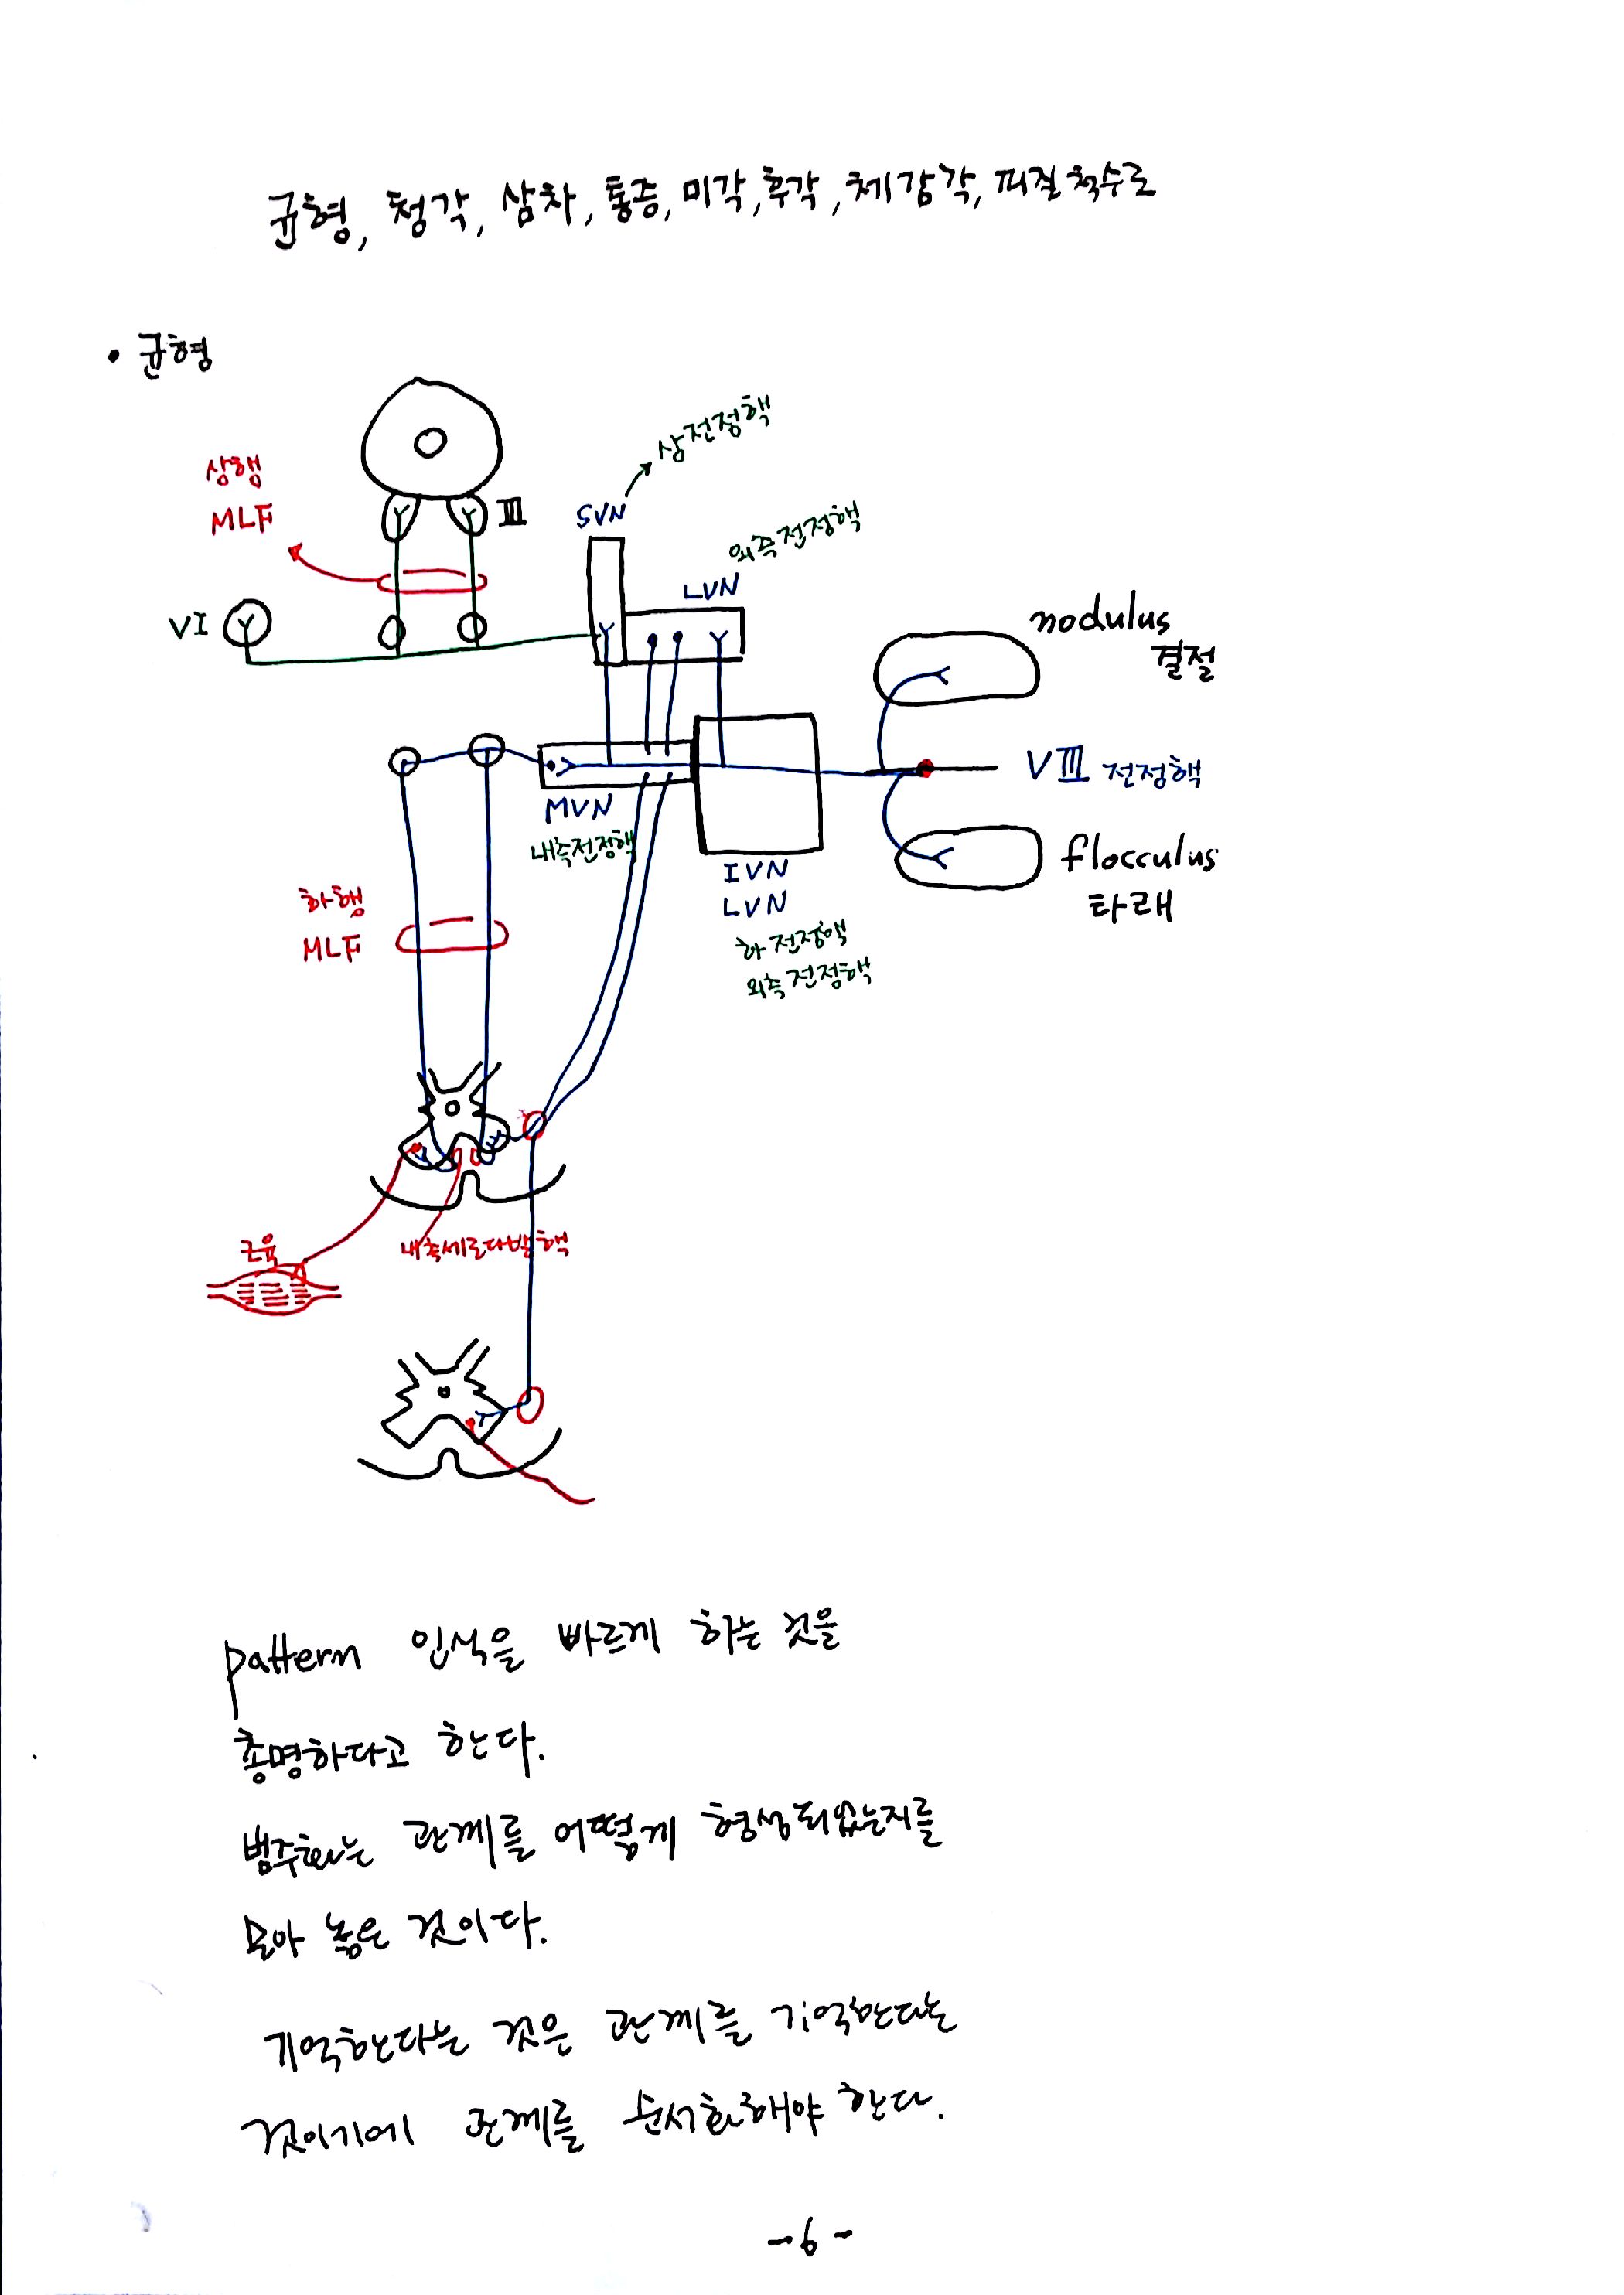 균형, 청각, 삼차, 통증, 미각, 후각, 체감각, 피질척수로
• 균형
상전정핵
상행
MLF
III
SVN
외측전정핵
LVN
VI
nodulus
결절
VIII 전정핵
MVN
내측전정핵
flocculus
타래
IVN
LVN
하행
MLF
하전정핵
외측전정핵
근육
내측세로다발핵
pattern 인식을 빠르게 하는 것을
총명하다고 한다.
범주화는 관계를 어떻게 형성되었는지를
모아 놓은 것이다.
기억한다는 것은 관계를 기억한다는
것이기에 관계를 순서화해야 한다.
-6-